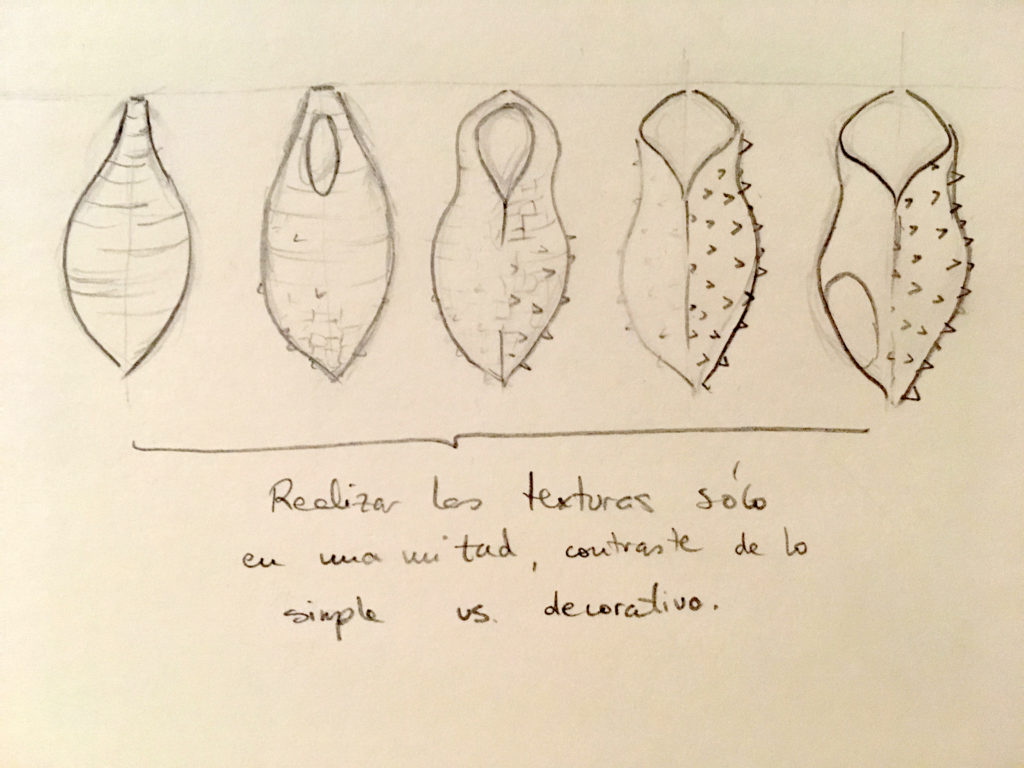 Realizar las texturas sólo
en una mitad, contraste de lo
simple vs. decorativo.